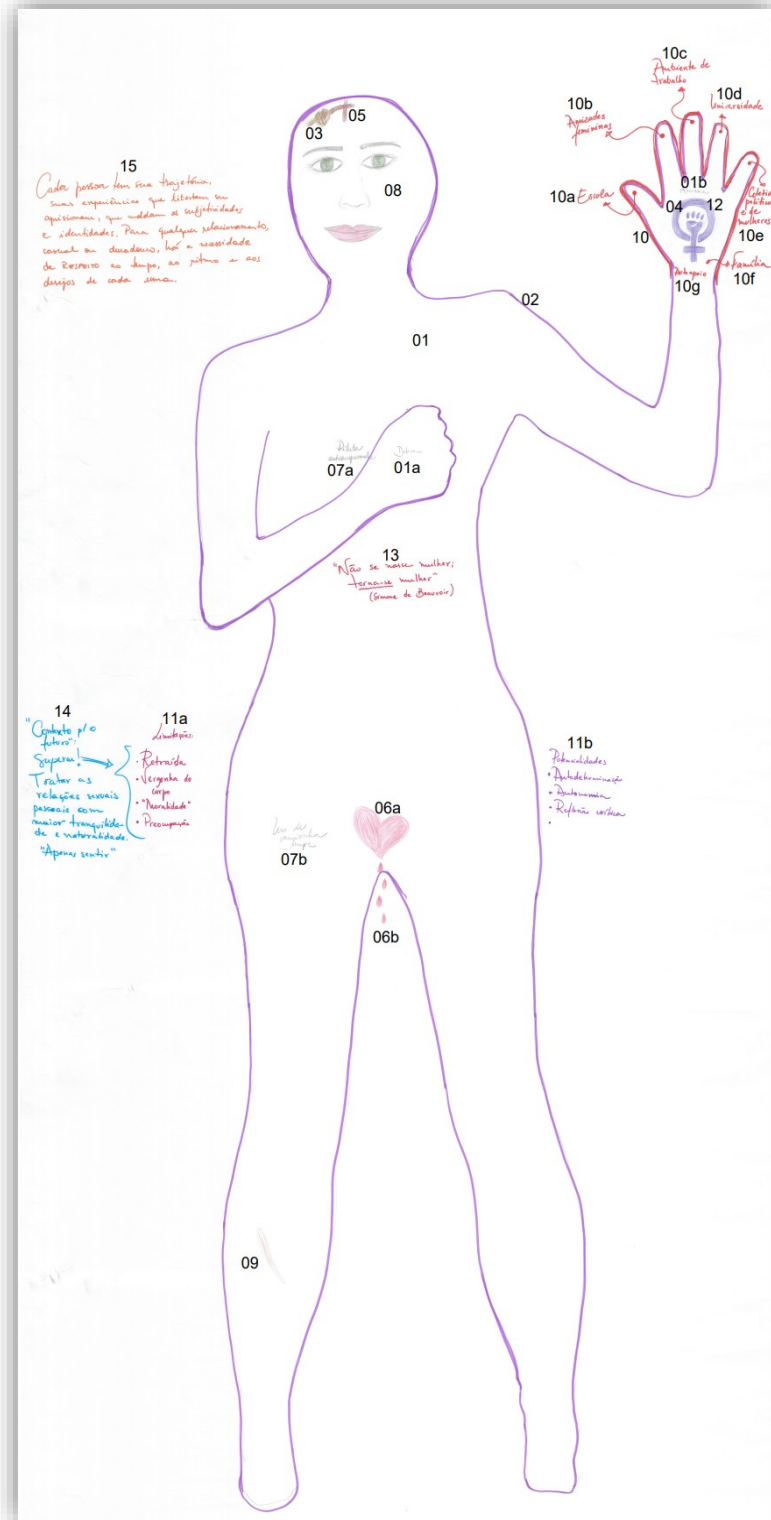 10c
Ambiente de
trabalho
10b
Amizades
femininas
10d
Universidade
03
05
08
15
Cada pessoa tem sua trajetória,
suas experiências que libertam ou
aprisionam, que moldam as subjetividades
e identidades. Para qualquer relacionamento,
casual ou duradouro, há a necessidade
de RESPEITO ao tempo, ao ritmo e aos
desejos de cada uma.
10a Escola
01b
04
12
10
Coletivo
político
e de
mulheres
10e
Família
10f
10g
02
01
07a
01a
13
"Não se nasce mulher;
torna-se mulher"
(Simone de Beauvoir)
14
"Contexto p/ o
futuro":
Superar!
Tratar as
relações sexuais
pessoais com
maior tranquilida-
de e naturalidade.
"Apenas sentir"
11a
Limitações:
• Retraída
• Vergonha do
corpo
• "Moralidade"
• Preocupação
11b
Potencialidades
• Autodeterminação
• Autonomia
• Reflexão crítica
•
06a
07b
06b
09